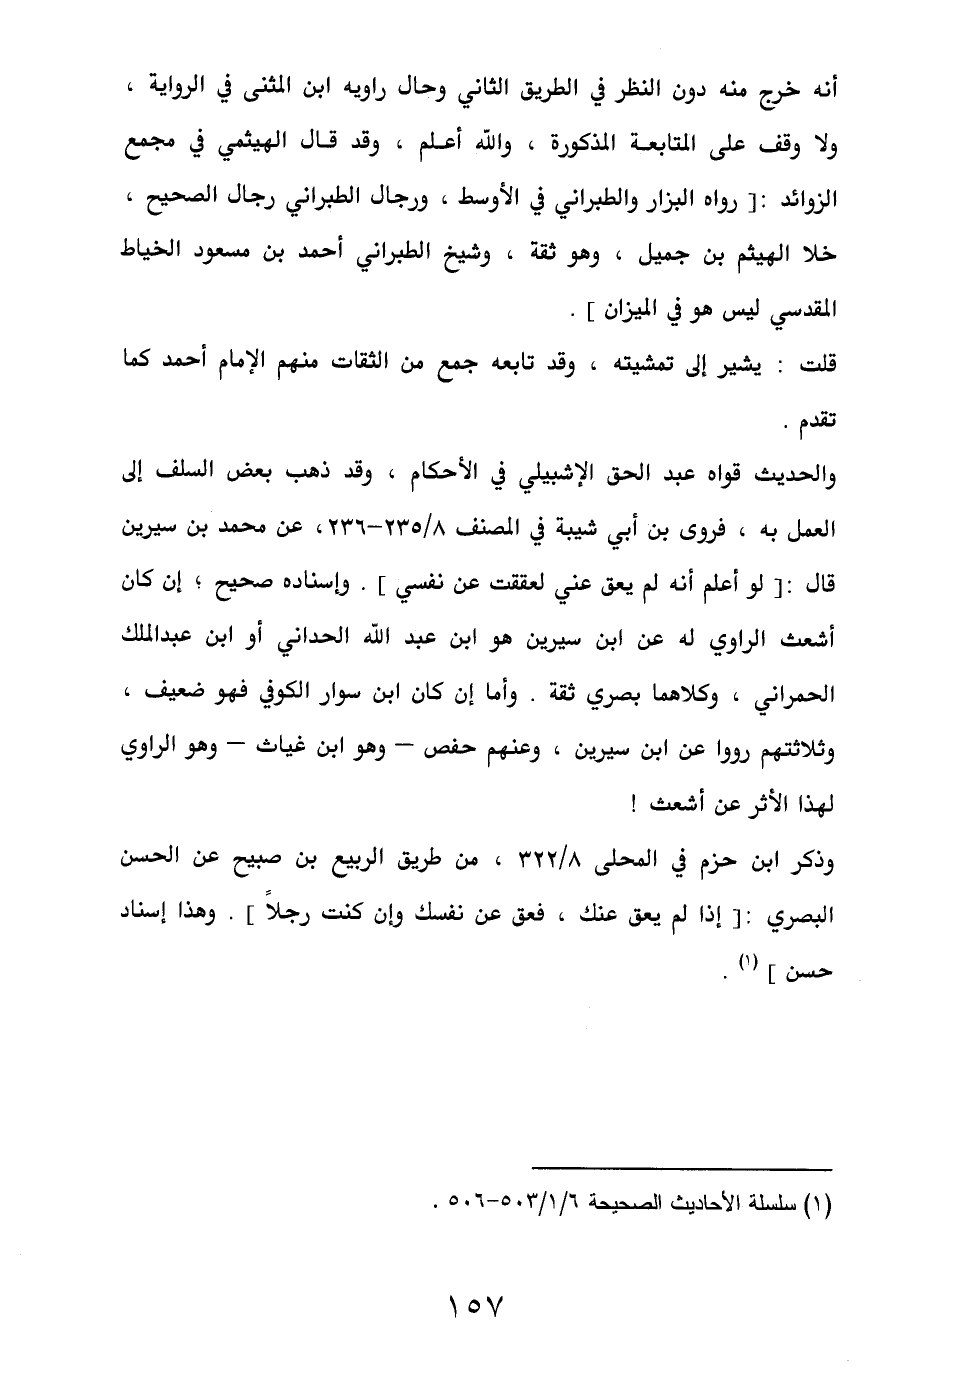 أنه خرج منه دون النظر في الطريق الثاني وحال راويه ابن المثنى في الرواية ،
ولا وقف على المتابعة المذكورة ، والله أعلم ، وقد قال الهيثمي في مجمع
الزوائد :[ رواه البزار والطبراني في الأوسط ، ورجال الطبراني رجال الصحيح ،
خلا الهيثم بن جميل ، وهو ثقة ، وشيخ الطبراني أحمد بن مسعود الخياط
المقدسي ليس هو في الميزان ] .
قلت : يشير إلى تمشيته ، وقد تابعه جمع من الثقات منهم الإمام أحمد كما
تقدم .
والحديث قواه عبد الحق الإشبيلي في الأحكام ، وقد ذهب بعض السلف إلى
العمل به ، فروى بن أبي شيبة في المصنف ٢٣٥/٨–٢٣٦، عن محمد بن سيرين
قال :[ لو أعلم أنه لم يعق عني لعققت عن نفسي ] . وإسناده صحيح ؛ إن كان
أشعث الراوي له عن ابن سيرين هو ابن عبد الله الحداني أو ابن عبدالملك
الحمراني ، وكلاهما بصري ثقة . وأما إن كان ابن سوار الكوفي فهو ضعيف ،
وثلاثتهم رووا عن ابن سيرين ، وعنهم حفص – وهو ابن غياث – وهو الراوي
لهذا الأثر عن أشعث !
وذكر ابن حزم في المحلى ٣٢٢/٨ ، من طريق الربيع بن صبيح عن الحسن
البصري :[ إذا لم يعق عنك ، فعق عن نفسك وإن كنت رجلاً ] . وهذا إسناد
حسن ] (١) .
(١) سلسلة الأحاديث الصحيحة ٥٠٣/١/٦–٥٠٦ .
١٥٧